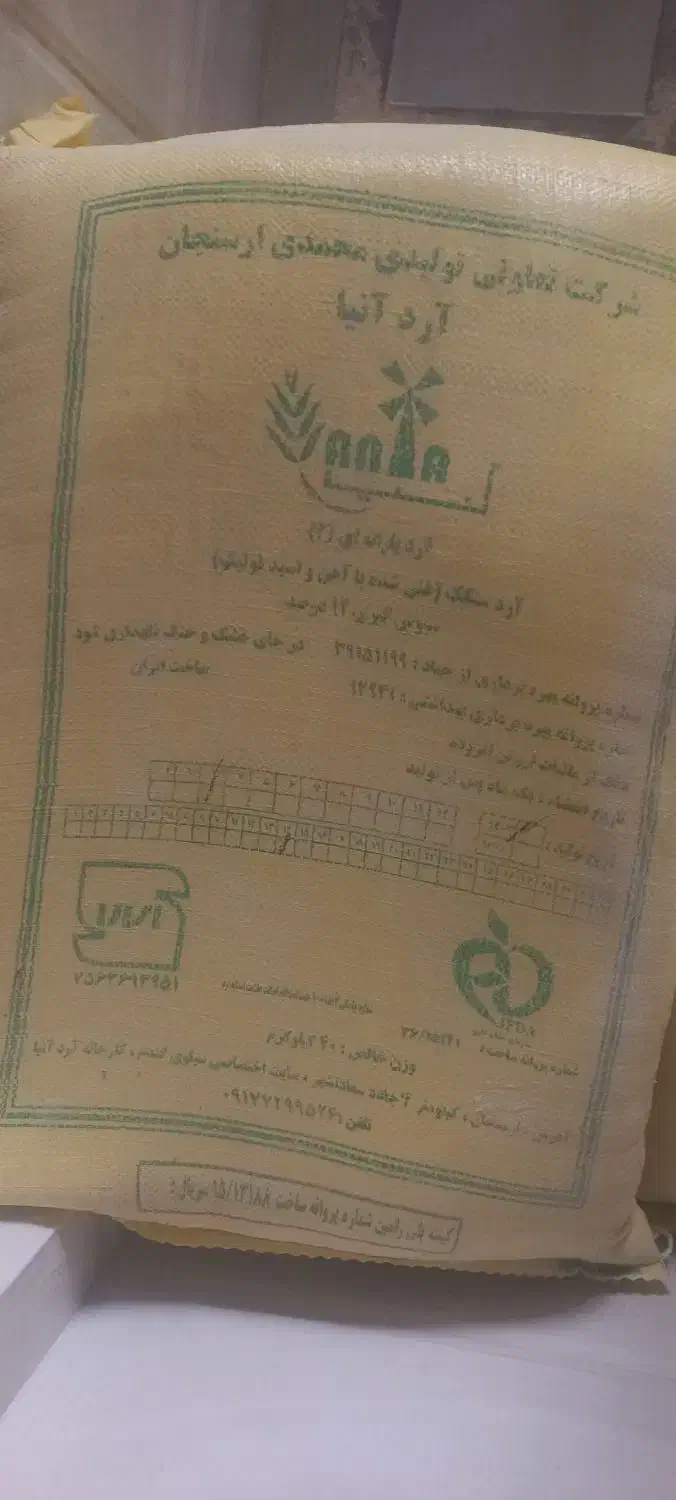 شرکت تعاونی تولیدی محمدی ارسنجان
آرد آنیا
anna
آنیا
آرد یارانه ای (۲)
آرد سنگک (غنی شده با آهن و اسید فولیک)
سبوس گیری ۱۲ درصد
شماره پروانه بهره برداری از جهاد : ۳۹۱۵۱۱۹۹
در جای خشک و خنک نگهداری شود
شماره پروانه بهره برداری بهداشتی : ۱۲۹۳۱
ساخت ایران
معاف از مالیات ارزش افزوده
تاریخ انقضاء : یک ماه پس از تولید
تاریخ تولید :
۷۵۶۲۶۱۳۹۵۱
I.F.D.A
شماره پروانه ساخت :
وزن خالص : ۴۰ کیلوگرم
آدرس : ارسنجان ، کیلومتر ۴ جاده سعادتشهر ، سایت اختصاصی سیلوی گندم ، کارخانه آرد آنیا
تلفن : ۰۹۱۷۷۲۹۹۵۲۴
کیسه پلی رامین شماره پروانه ساخت ۹۵/۱۳۱۸۸ سریال :